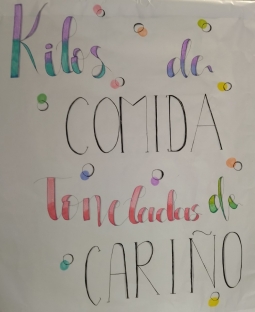 Kilos de
COMIDA
Toneladas de
CARIÑO